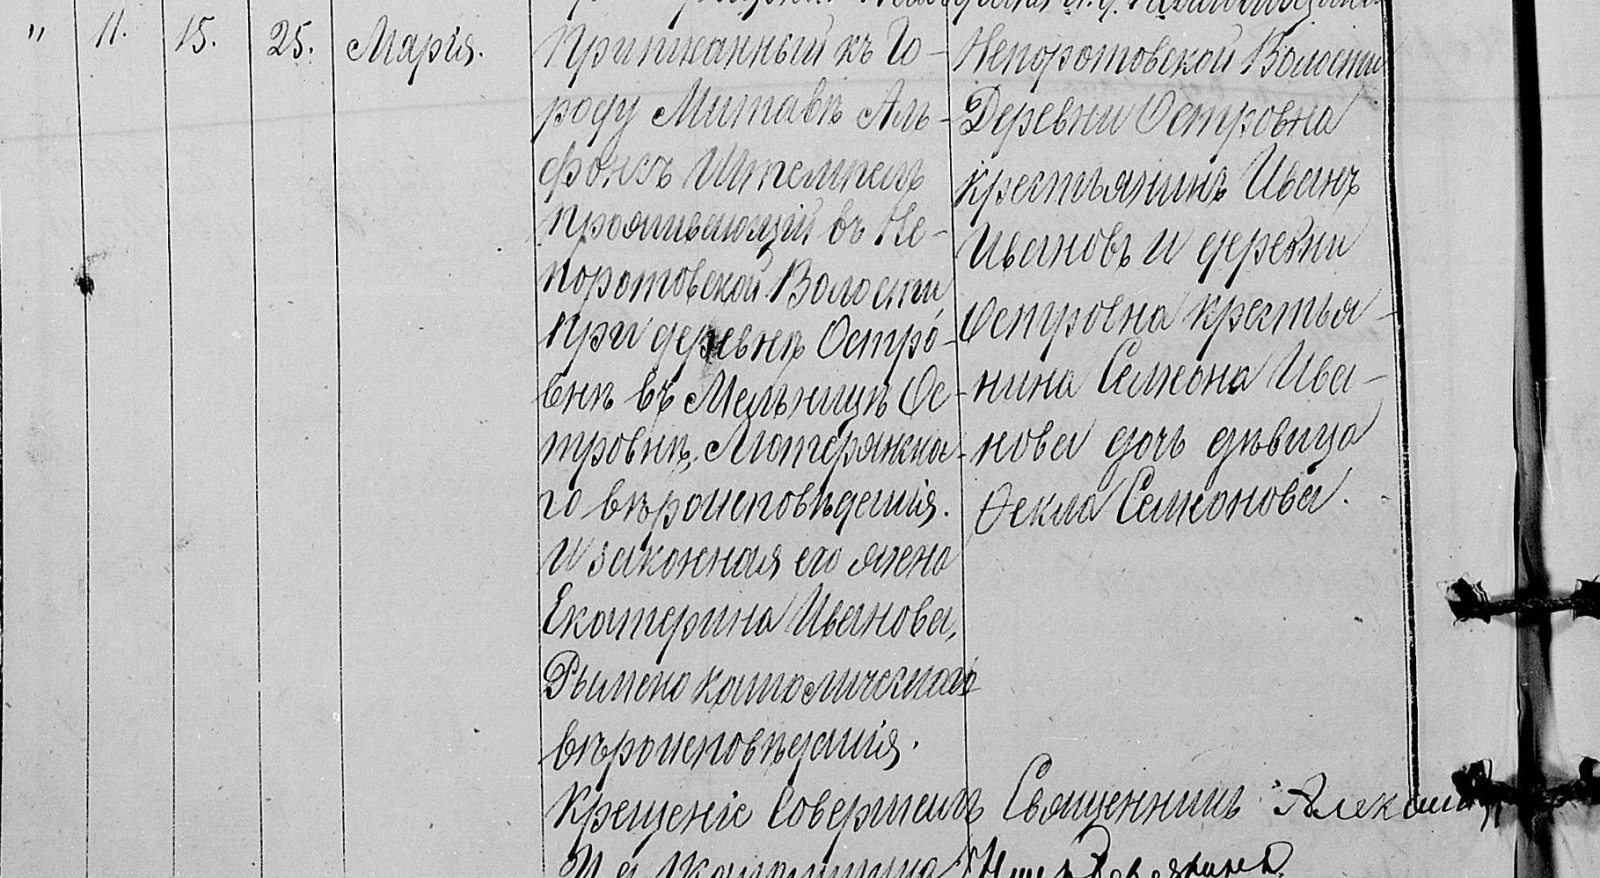 " 11. 15. 25. Марія.
Приписанный къ Го-
роду Митавѣ Аль-
фонсъ Штемпель
проживающій въ Не-
поротовской Волости
при деревнѣ Остро-
внѣ въ Мельницѣ Ос-
тровнѣ, Лютерянска-
го вѣроисповѣданія.
И законная его жена
Екатерина Иванова,
Римско католическаго
вѣроисповѣданія.
Непоротовской Волости
Деревни Островна
крестьянинъ Иванъ
Ивановъ и деревни
Островна крестья-
нина Семеона Ива-
нова дочь дѣвица
Ѳекла Семеонова.
Крещеніе совершилъ Священникъ Александръ